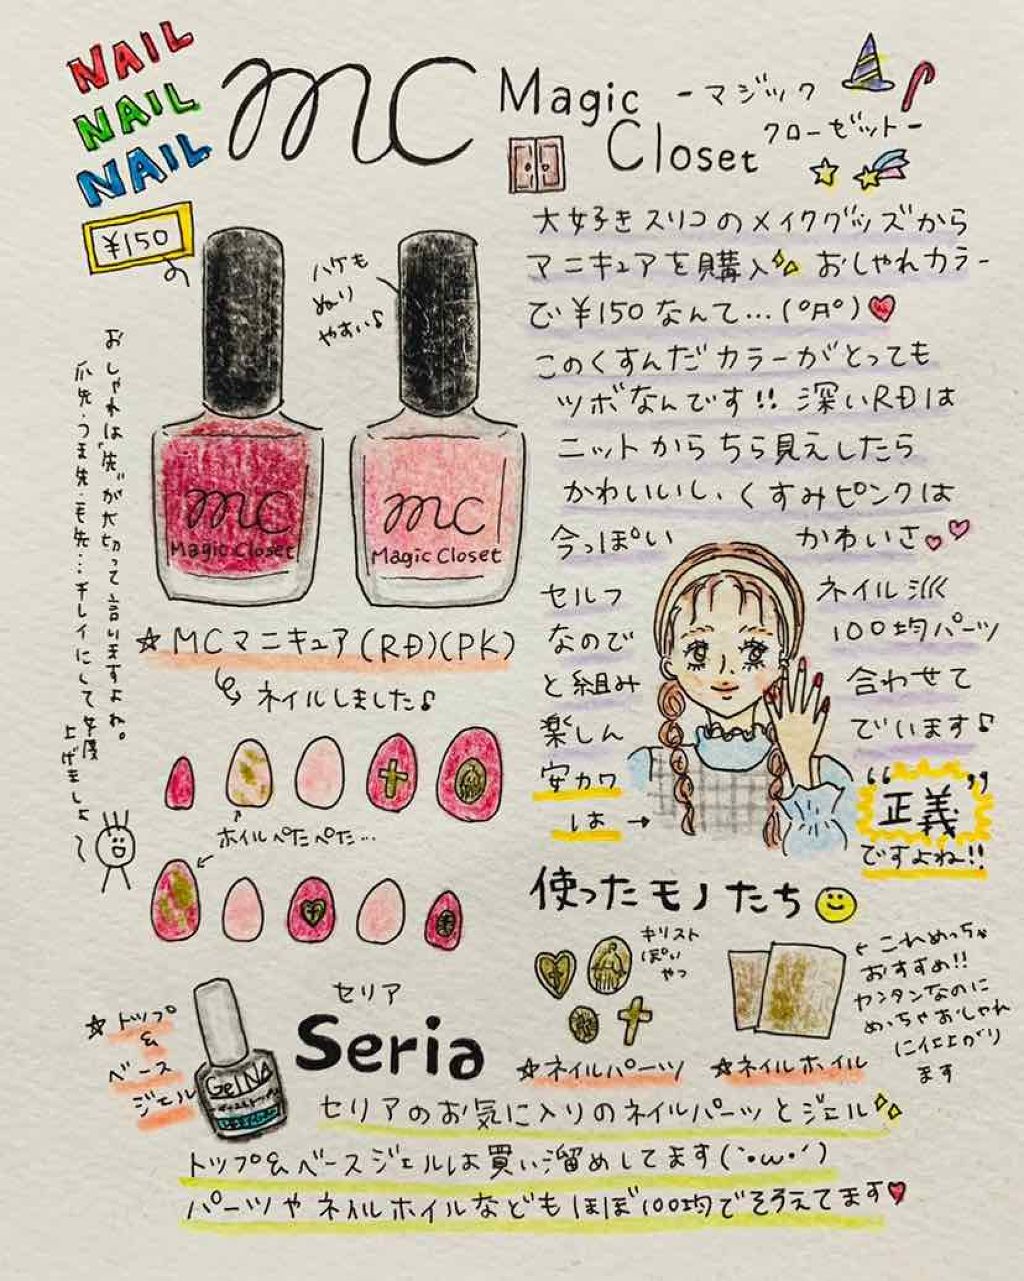 NAIL
NAIL
NAIL
mc
Magic
Closet
-マジック
クローゼット-
¥150
ハケも
ぬり
やすい♪
mc
Magic Closet
mc
Magic Closet
大好きスリコのメイクグッズから
マニキュアを購入 おしゃれカラー
で¥150なんて…(°Д°)♥
このくすんだカラーがとっても
ツボなんです!! 深いRDは
ニットからちら見えしたら
かわいいし、くすみピンクは
今っぽい かわいさ♡♡
セルフ ネイル派
なので 100均パーツ
と組み 合わせて
楽しん でいます♪
安カワ
は→
“正義”
ですよね!!
おしゃれは“先”が大切って言いますよね。
爪先・つま先・毛先…キレイにして
上げましょ〜
☆MCマニキュア(RD)(PK)
ネイルしました♪
ホイルぺたぺた…
使ったモノたち
キリスト
ぽい
やつ
←これめっちゃ
おすすめ!!
カンタンなのに
めっちゃおしゃれ
に仕上がり
ます
☆ネイルパーツ
☆ネイルホイル
☆トップ
&
ベース
ジェル
GelNA
セリア
Seria
セリアのお気に入りのネイルパーツとジェル
トップ&ベースジェルは買い溜めしてます(`・ω・´)
パーツやネイルホイルなどもほぼ100均でそろえてます♥